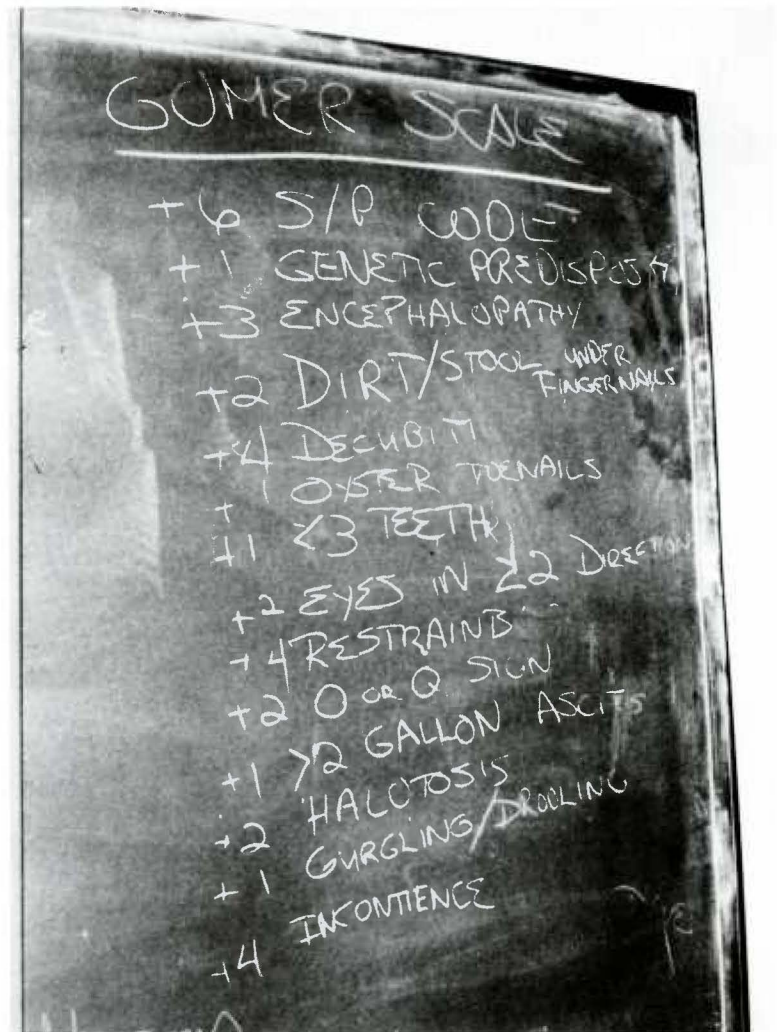 GOMER SCALE
+6 S/P CODE
+1 GENETIC
+3 ENCEPHALOPATHY
+2 DIRT/STOOL UNDER FINGERNAILS
+4 DECUBITI
+1 OYSTER TOENAILS
+1 <3 TEETH
+2 EYES IN ≥2 DIRECTION
+4 RESTRAINTS
+2 O OR Q SIGN
+1 >2 GALLON ASCITS
+2 HALOTOSIS
+1 GURGLING/DROOLING
+4 INCONTIENCE